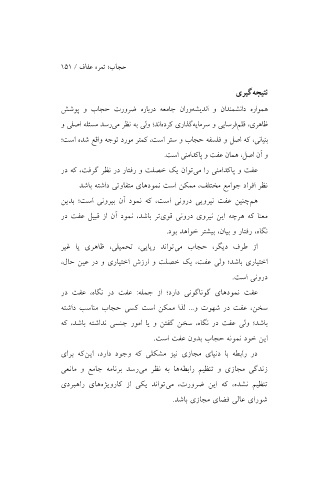 حجاب؛ ثمره عفاف / ۱۵۱
نتیجه‌گیری
همواره دانشمندان و اندیشه‌وران جامعه درباره ضرورت حجاب و پوشش
ظاهری، قلم‌فرسایی و سرمایه‌گذاری کرده‌اند؛ ولی به نظر می‌رسد مسئله اصلی و
بنیانی، که اصل و فلسفه حجاب و ستر است، کمتر مورد توجه واقع شده است؛
و آن اصل، همان عفت و پاکدامنی است.
عفت و پاکدامنی را می‌توان یک خصلت و رفتار در نظر گرفت، که در
نظر افراد جوامع مختلف، ممکن است نمودهای متفاوتی داشته باشد
هم‌چنین عفت نیرویی درونی است، که نمود آن بیرونی است؛ بدین
معنا که هرچه این نیروی درونی قوی‌تر باشد، نمود آن از قبیل عفت در
نگاه، رفتار و بیان، بیشتر خواهد بود.
از طرف دیگر، حجاب می‌تواند ریایی، تحمیلی، ظاهری یا غیر
اختیاری باشد؛ ولی عفت، یک خصلت و ارزش اختیاری و در عین حال،
درونی است.
عفت نمودهای گوناگونی دارد؛ از جمله: عفت در نگاه، عفت در
سخن، عفت در شهوت و... لذا ممکن است کسی حجاب مناسب داشته
باشد؛ ولی عفت در نگاه، سخن گفتن و یا امور جنسی نداشته باشد، که
این خود نمونه حجاب بدون عفت است.
در رابطه با دنیای مجازی نیز مشکلی که وجود دارد، این‌که برای
زندگی مجازی و تنظیم رابطه‌ها به نظر می‌رسد برنامه جامع و مانعی
تنظیم نشده، که این ضرورت، می‌تواند یکی از کارویژه‌های راهبردی
شورای عالی فضای مجازی باشد.